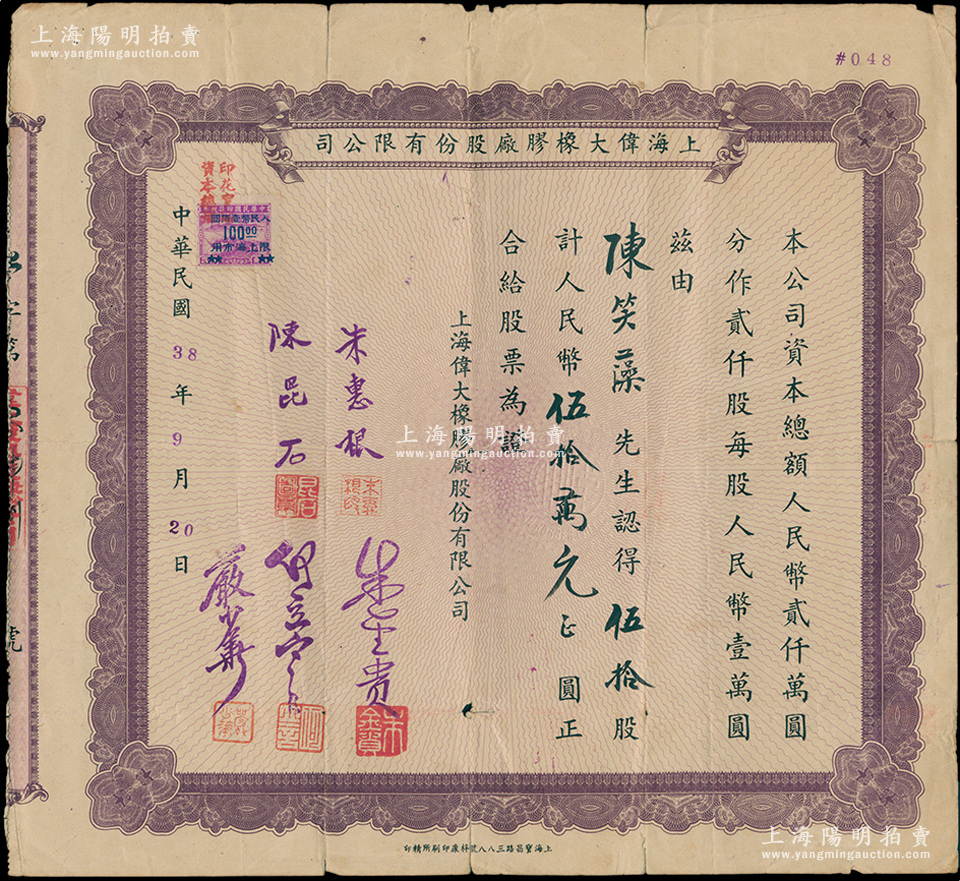 上海陽明拍賣
www.yangmingauction.com
#048
司公限有份股廠膠橡大偉海上
本公司資本總額人民幣貳仟萬圓
分作貳仟股每股人民幣壹萬圓
茲由
陳笑藻先生認得伍拾股
計人民幣伍拾萬元正圓正
合給股票為證
上海偉大橡膠廠股份有限公司
朱惠根
陳昆石
朱金貴
嚴少華
印花
資本總
100.00
用市海上限
中華民國38年9月20日
字第
號
上海陽明拍賣
www.yangmingauction.com
上海寶昌路三八八號科康印刷所精印
上海陽明拍賣
www.yangmingauction.com